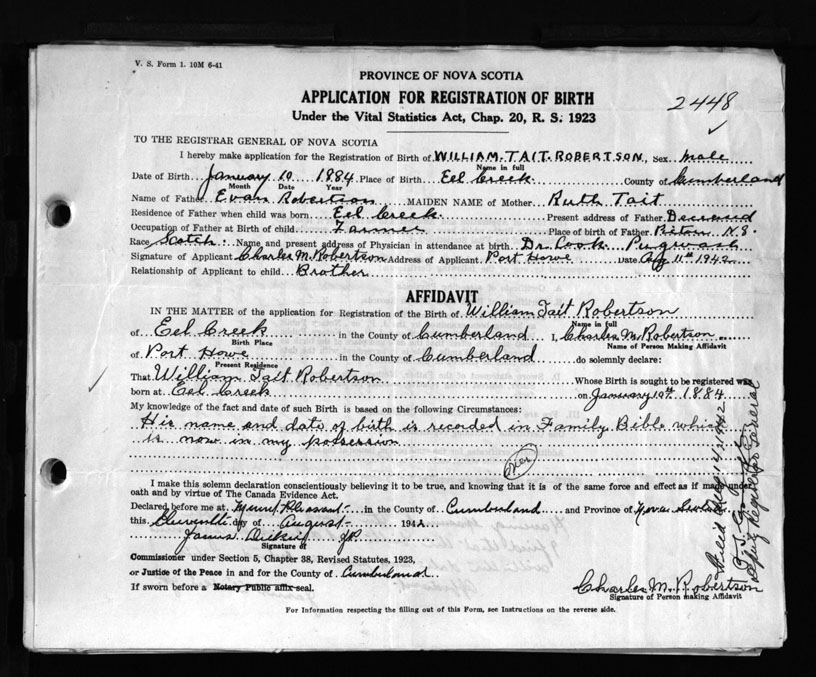 V. S. Form 1. 10M 6-41
PROVINCE OF NOVA SCOTIA
APPLICATION FOR REGISTRATION OF BIRTH
2448
Under the Vital Statistics Act, Chap. 20, R. S. 1923
TO THE REGISTRAR GENERAL OF NOVA SCOTIA
I hereby make application for the Registration of Birth of WILLIAM. TAIT. ROBERTSON, Sex male
Name in full
Date of Birth January 10 1884 Place of Birth Eel Creek County of Cumberland
Month Date Year
Name of Father Evan Robertson MAIDEN NAME of Mother Ruth Tait
Residence of Father when child was born Eel Creek Present address of Father Deceased
Occupation of Father at Birth of child Farmer Place of birth of Father Pictou N.S.
Race Scotch Name and present address of Physician in attendance at birth Dr. Cook Pugwash
Signature of Applicant Charles M. Robertson Address of Applicant Port Howe Date Aug 11th 1942
Relationship of Applicant to child Brother
AFFIDAVIT
IN THE MATTER of the application for Registration of the Birth of William Tait Robertson
Name in full
of Eel Creek in the County of Cumberland I, Charles M. Robertson
Birth Place Name of Person Making Affidavit
of Port Howe in the County of Cumberland do solemnly declare:
Present Residence
That William Tait Robertson Whose Birth is sought to be registered was
born at Eel Creek on January 10th 1884
My knowledge of the fact and date of such Birth is based on the following Circumstances:
His name and date of birth is recorded in Family Bible which
is now in my possession
I make this solemn declaration conscientiously believing it to be true, and knowing that it is of the same force and effect as if made under
oath and by virtue of The Canada Evidence Act.
Declared before me at Mount Pleasant in the County of Cumberland and Province of Nova Scotia
this Eleventh day of August 1942
James Dickie JP
Signature of
Commissioner under Section 5, Chapter 38, Revised Statutes, 1923,
or Justice of the Peace in and for the County of Cumberland
If sworn before a Notary Public affix seal.
Charles M. Robertson
Signature of Person making Affidavit
For Information respecting the filling out of this Form, see Instructions on the reverse side.
Filed Aug 14/1942
Deputy Registrar General